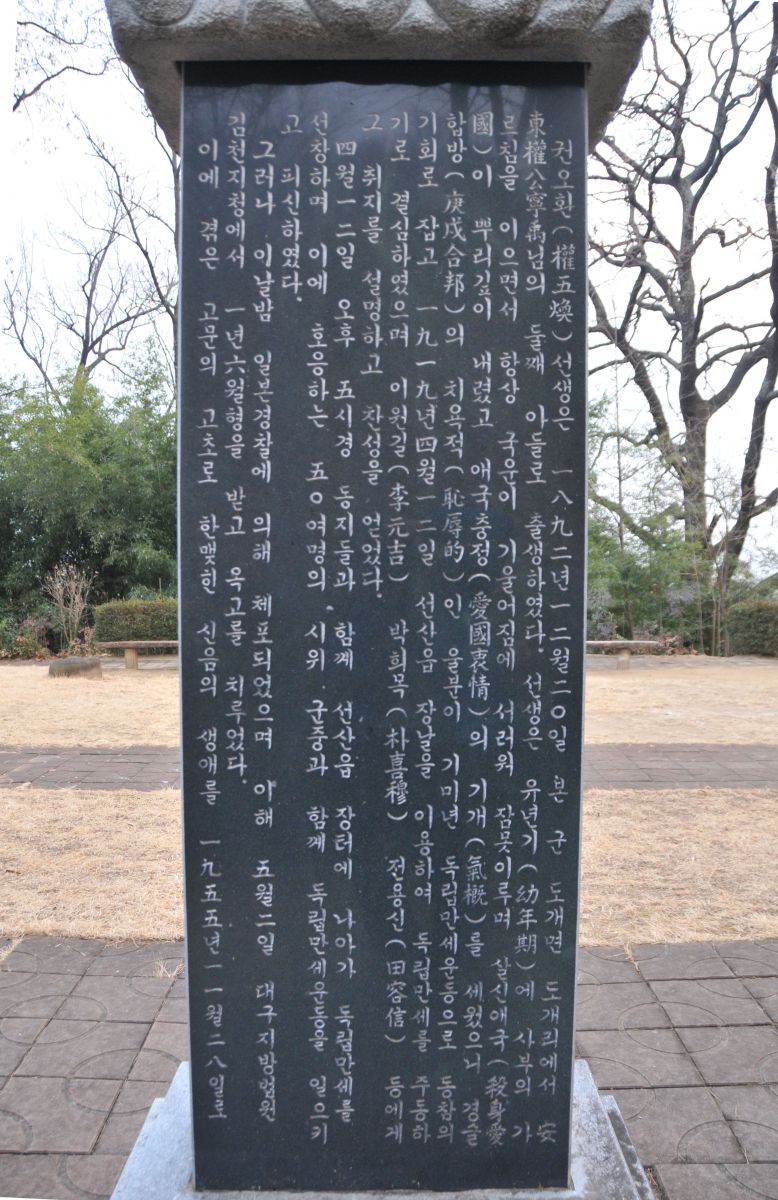 권오환(權五煥)선생은 一八九二년一二월二○일 본 군 도개면 도개리에서 安
東權公寧禹님의 둘째 아들로 출생하였다. 선생은 유년기(幼年期)에 사부의 가
르침을 이으면서 항상 국운이 기울어짐에 서러워 잠못이루며 살신애국(殺身愛
國)이 뿌리깊이 내렸고 애국충정(愛國衷情)의 기개(氣槪)를 세웠으니 경술
합방(庚戌合邦)의 치욕적(恥辱的)인 울분이 기미년 독립만세운동으로 동참의
기회로 잡고 一九一九년四월一二일 선산읍 장날을 이용하여 독립만세를 주동하
기로 결심하였으며 이원길(李元吉) 박희목(朴喜穆) 전용신(田容信) 등에게
그 취지를 설명하고 찬성을 얻었다.
四월一二일 오후 五시경 동지들과 함께 선산읍 장터에 나아가 독립만세를
선창하며 이에 호응하는 五○여명의 시위 군중과 함께 독립만세운동을 일으키
고 피신하였다.
그러나 이날밤 일본경찰에 의해 체포되었으며 이해 五월二일 대구지방법원
김천지청에서 一년六월형을 받고 옥고를 치루었다.
이에 겪은 고문의 고초로 한맺힌 신음의 생애를 一九五五년一一월二八일로